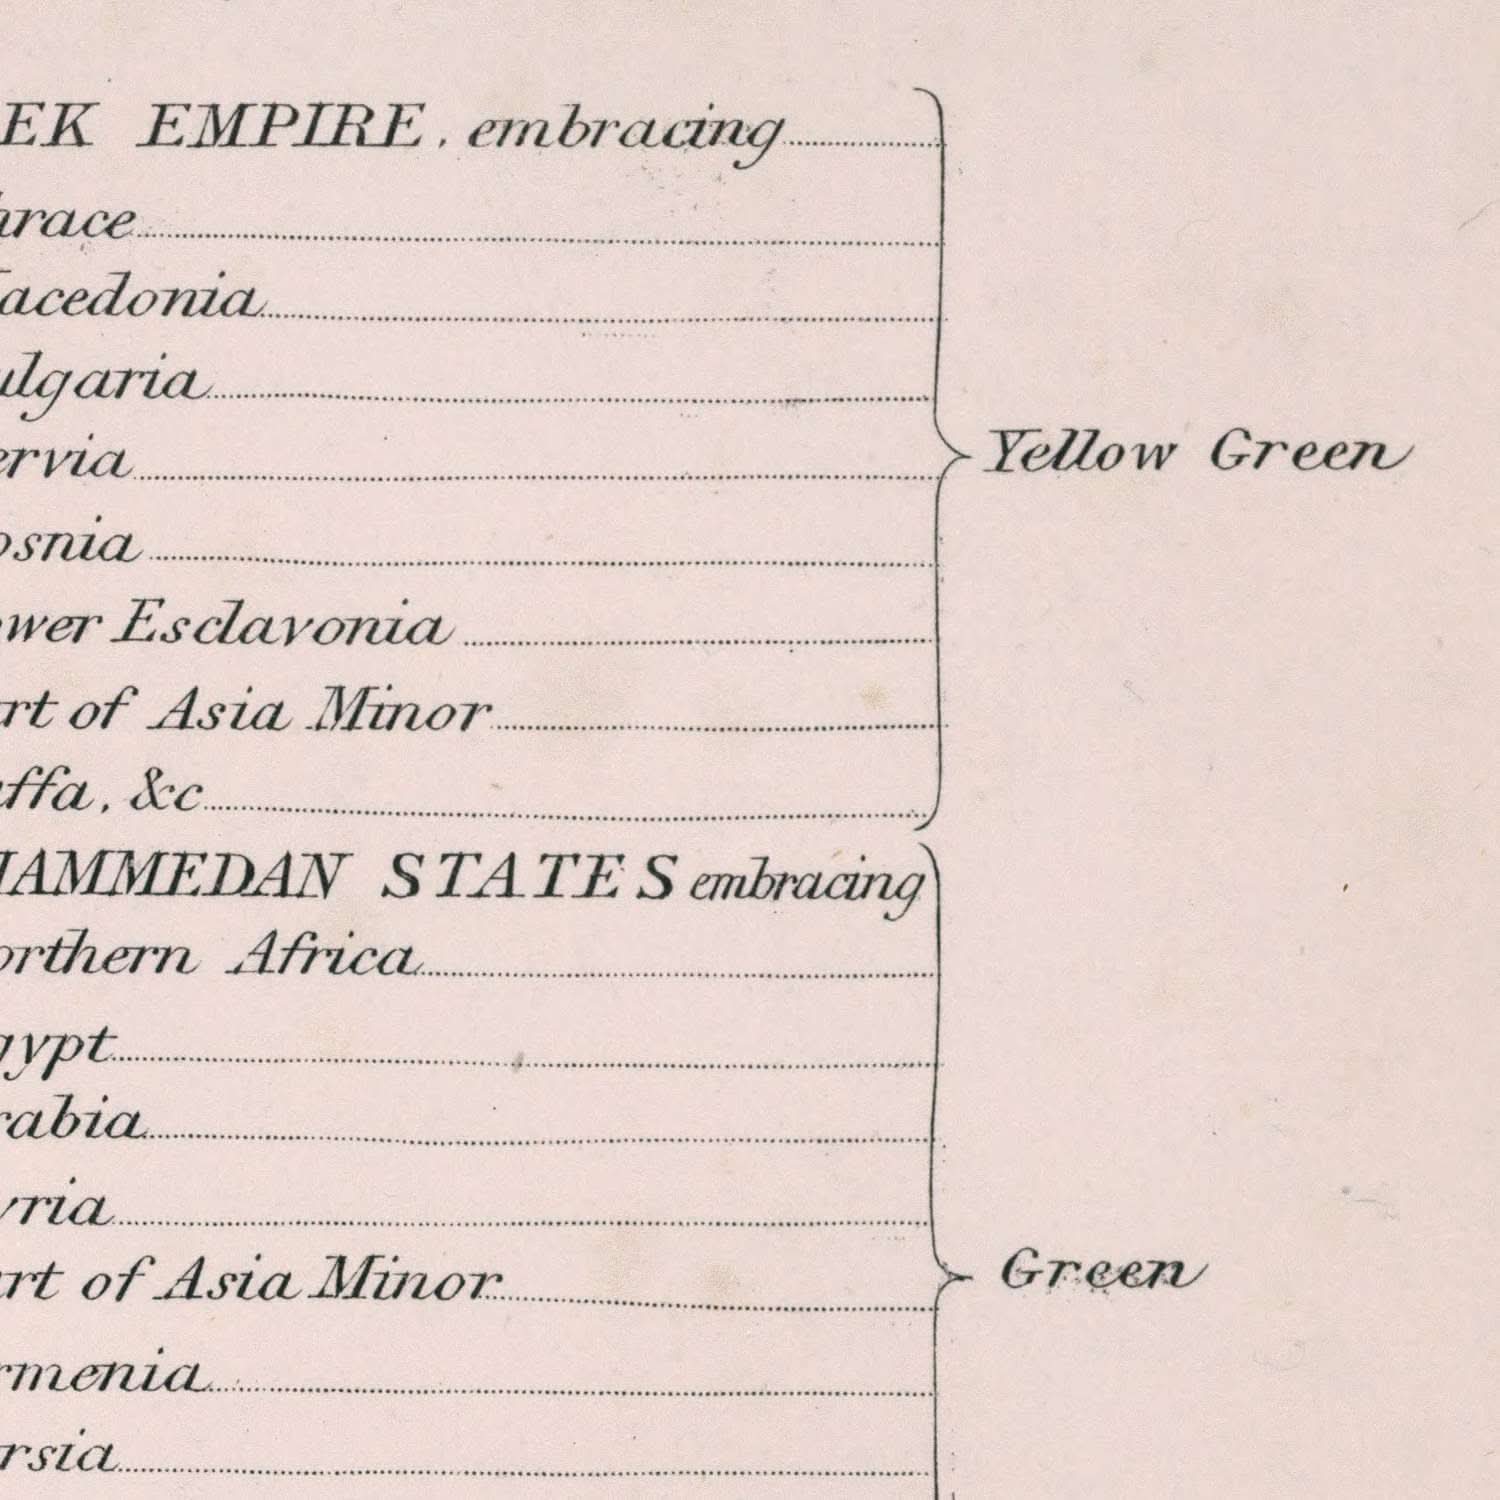 EK EMPIRE, embracing
hrace
acedonia
ulgaria
Yellow Green
ervia
osnia
ower Esclavonia
rt of Asia Minor
affa, &c
HAMMEDAN STATES embracing
orthern Africa
gypt
rabia
yria
Green
art of Asia Minor
rmenia
ersia